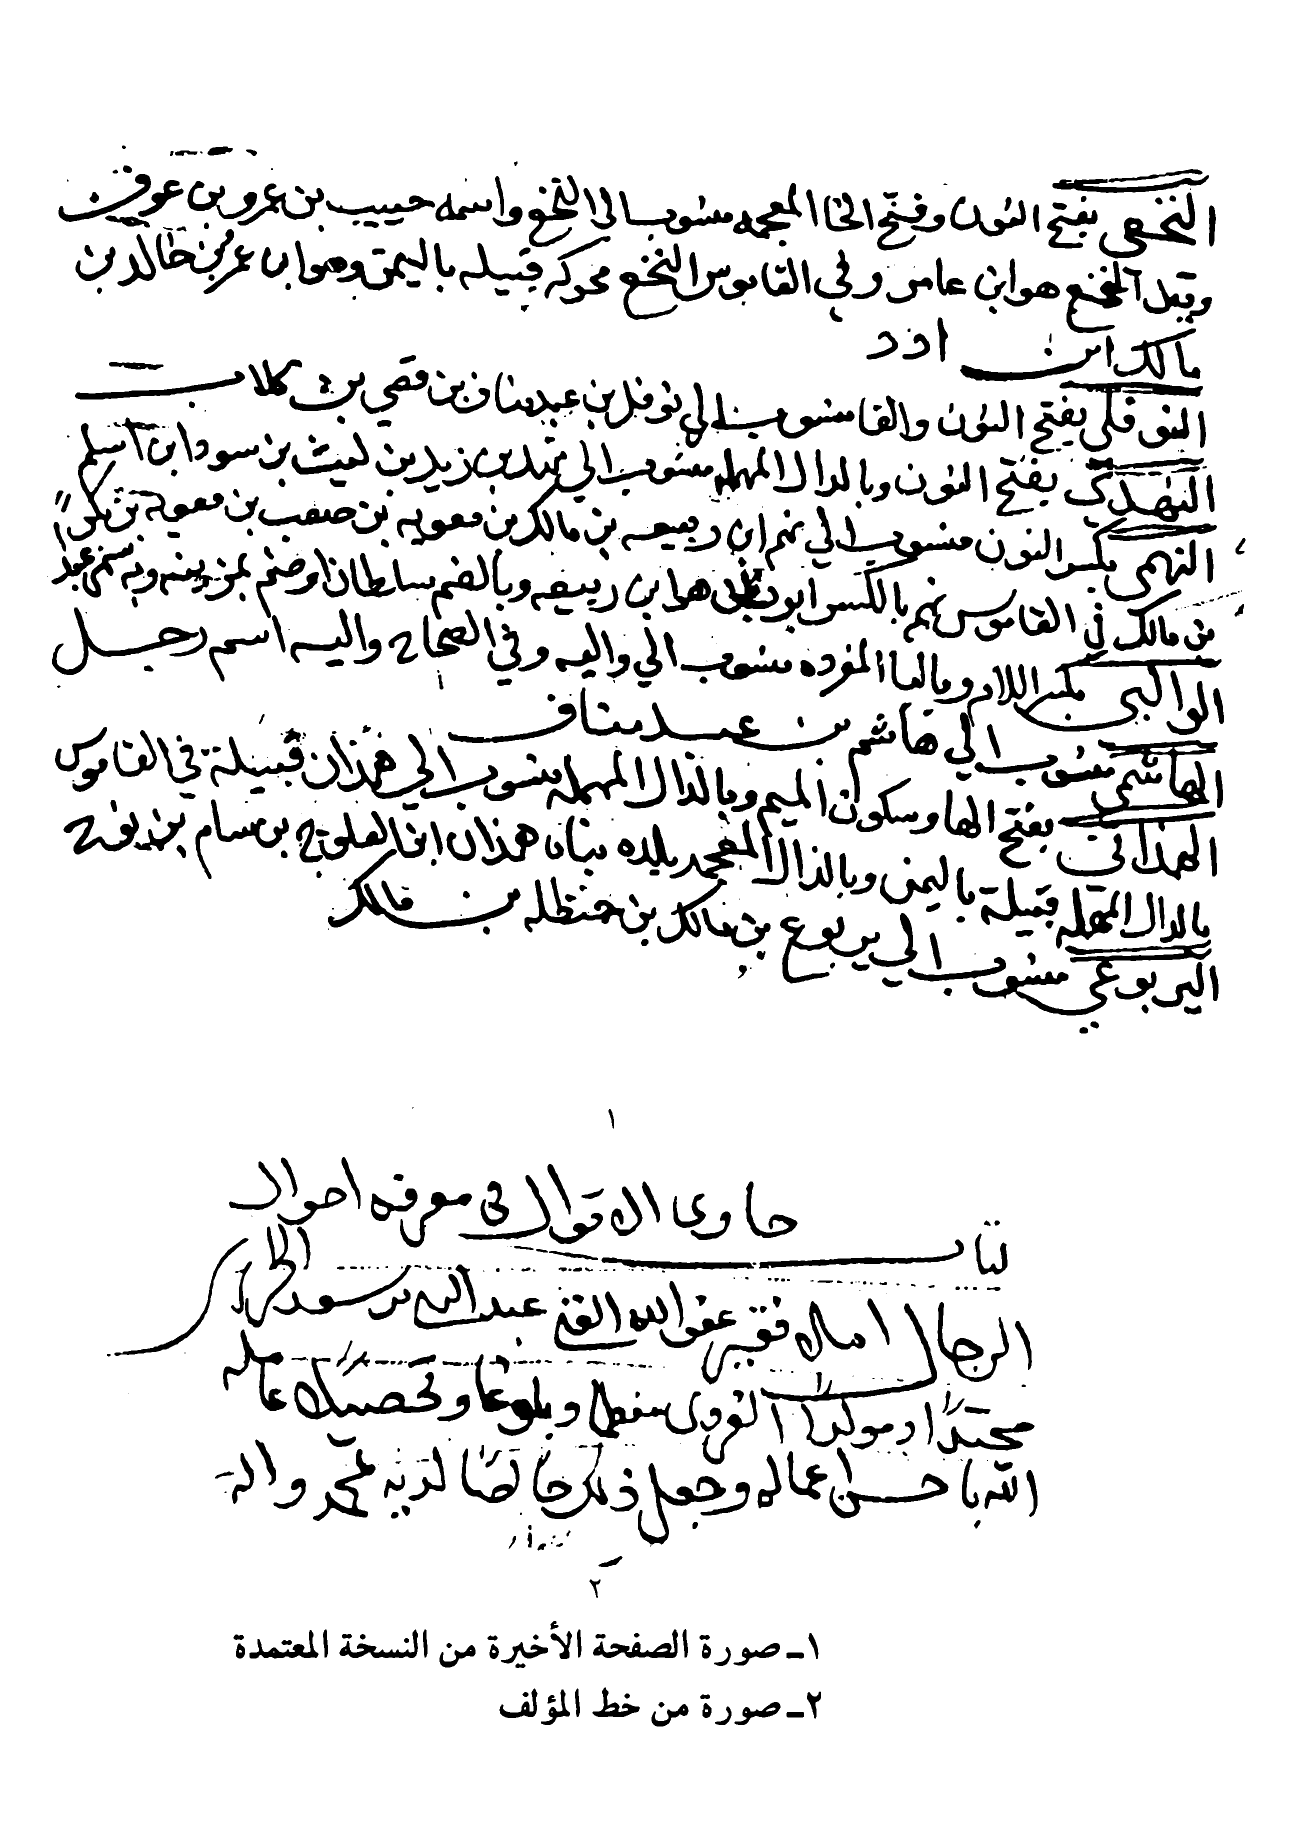 النخعي بفتح النون وفتح الخا المعجمه منسوب الى النخع واسمه حبيب بن عمرو بن عوف
وقيل النخع هو ابن عامر وفي القاموس النخع محركه قبيله باليمن وهو ابن عمرو بن خالد بن
مالك ابن ادد
النوفلي بفتح النون والفا منسوب الي نوفل بن عبد مناف بن قصي بن كلاب
النهدي بفتح النون وبالدال المهمله منسوب الي نهد بن زيد بن ليث بن سود ابن اسلم
النهمي بكسر النون منسوب الي نهم ابن ربيعه بن مالك بن معويه بن صعب بن معويه بن بكر
بن مالك في القاموس نهم بالكسر ابو بطن هو ابن ربيعه وبالضم شيطان او صنم لمزينه وبه سمي عبد
الوالبي بكسر اللام وبالبا المفرده منسوب الي والبه وفي الصحاح والبه اسم رجل
الهاشمي منسوب الي هاشم بن عبد مناف
الهمداني بفتح الها وسكون الميم وبالدال المهمله منسوب الي همدان قبيلة في القاموس
بالدال المهمله قبيلة باليمن وبالذال المعجمه بلده بناه همذان ابن الفلوج بن سام بن نوح
اليربوعي منسوب الي يربوع بن مالك بن حنظله بن مالك
١
كتاب حاوي الاقوال في معرفه احوال
الرجال فقير عفو الله الغني عبد النبي بن سعد الجزائري
محتدا ومولدا الغروي وبلوغا وتحصيلا عامله
الله باحسن اعماله وجعل ذلك خالصا لديه بمحمد واله
٢
١ـ صورة الصفحة الأخيرة من النسخة المعتمدة
٢ـ صورة من خط المؤلف